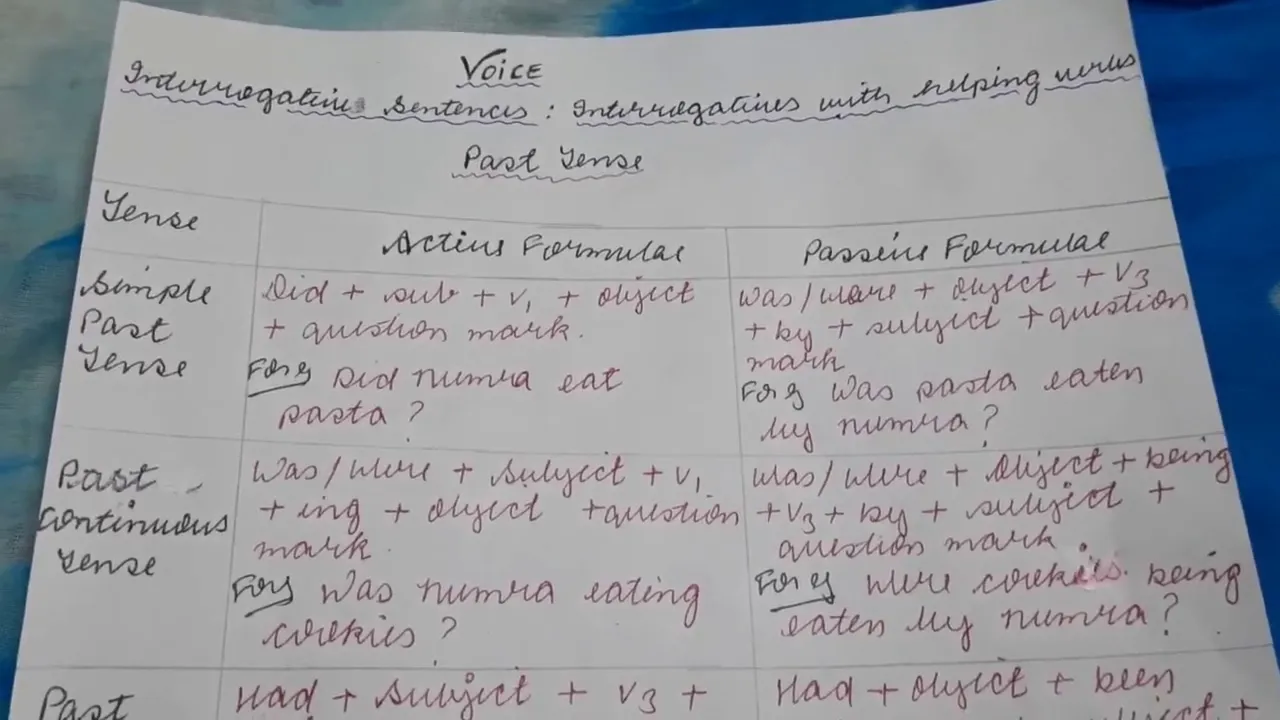 Voice
Interrogative Sentences : Interrogatives with helping verbs
Past Tense
Tense
Active Formulae
Passive Formulae
Simple
Past
Tense
Did + sub + V1 + object
+ question mark.
For eg Did numra eat
pasta ?
was/were + object + V3
+ by + subject + question
mark
For eg Was pasta eaten
by numra ?
Past
Continuous
Tense
Was/were + subject + V1
+ ing + object + question
mark.
For eg Was numra eating
cookies ?
Was/were + object + being
+ V3 + by + subject +
question mark.
For eg Were cookies being
eaten by numra ?
Past
Had + subject + V3 +
Had + object + been
subject +